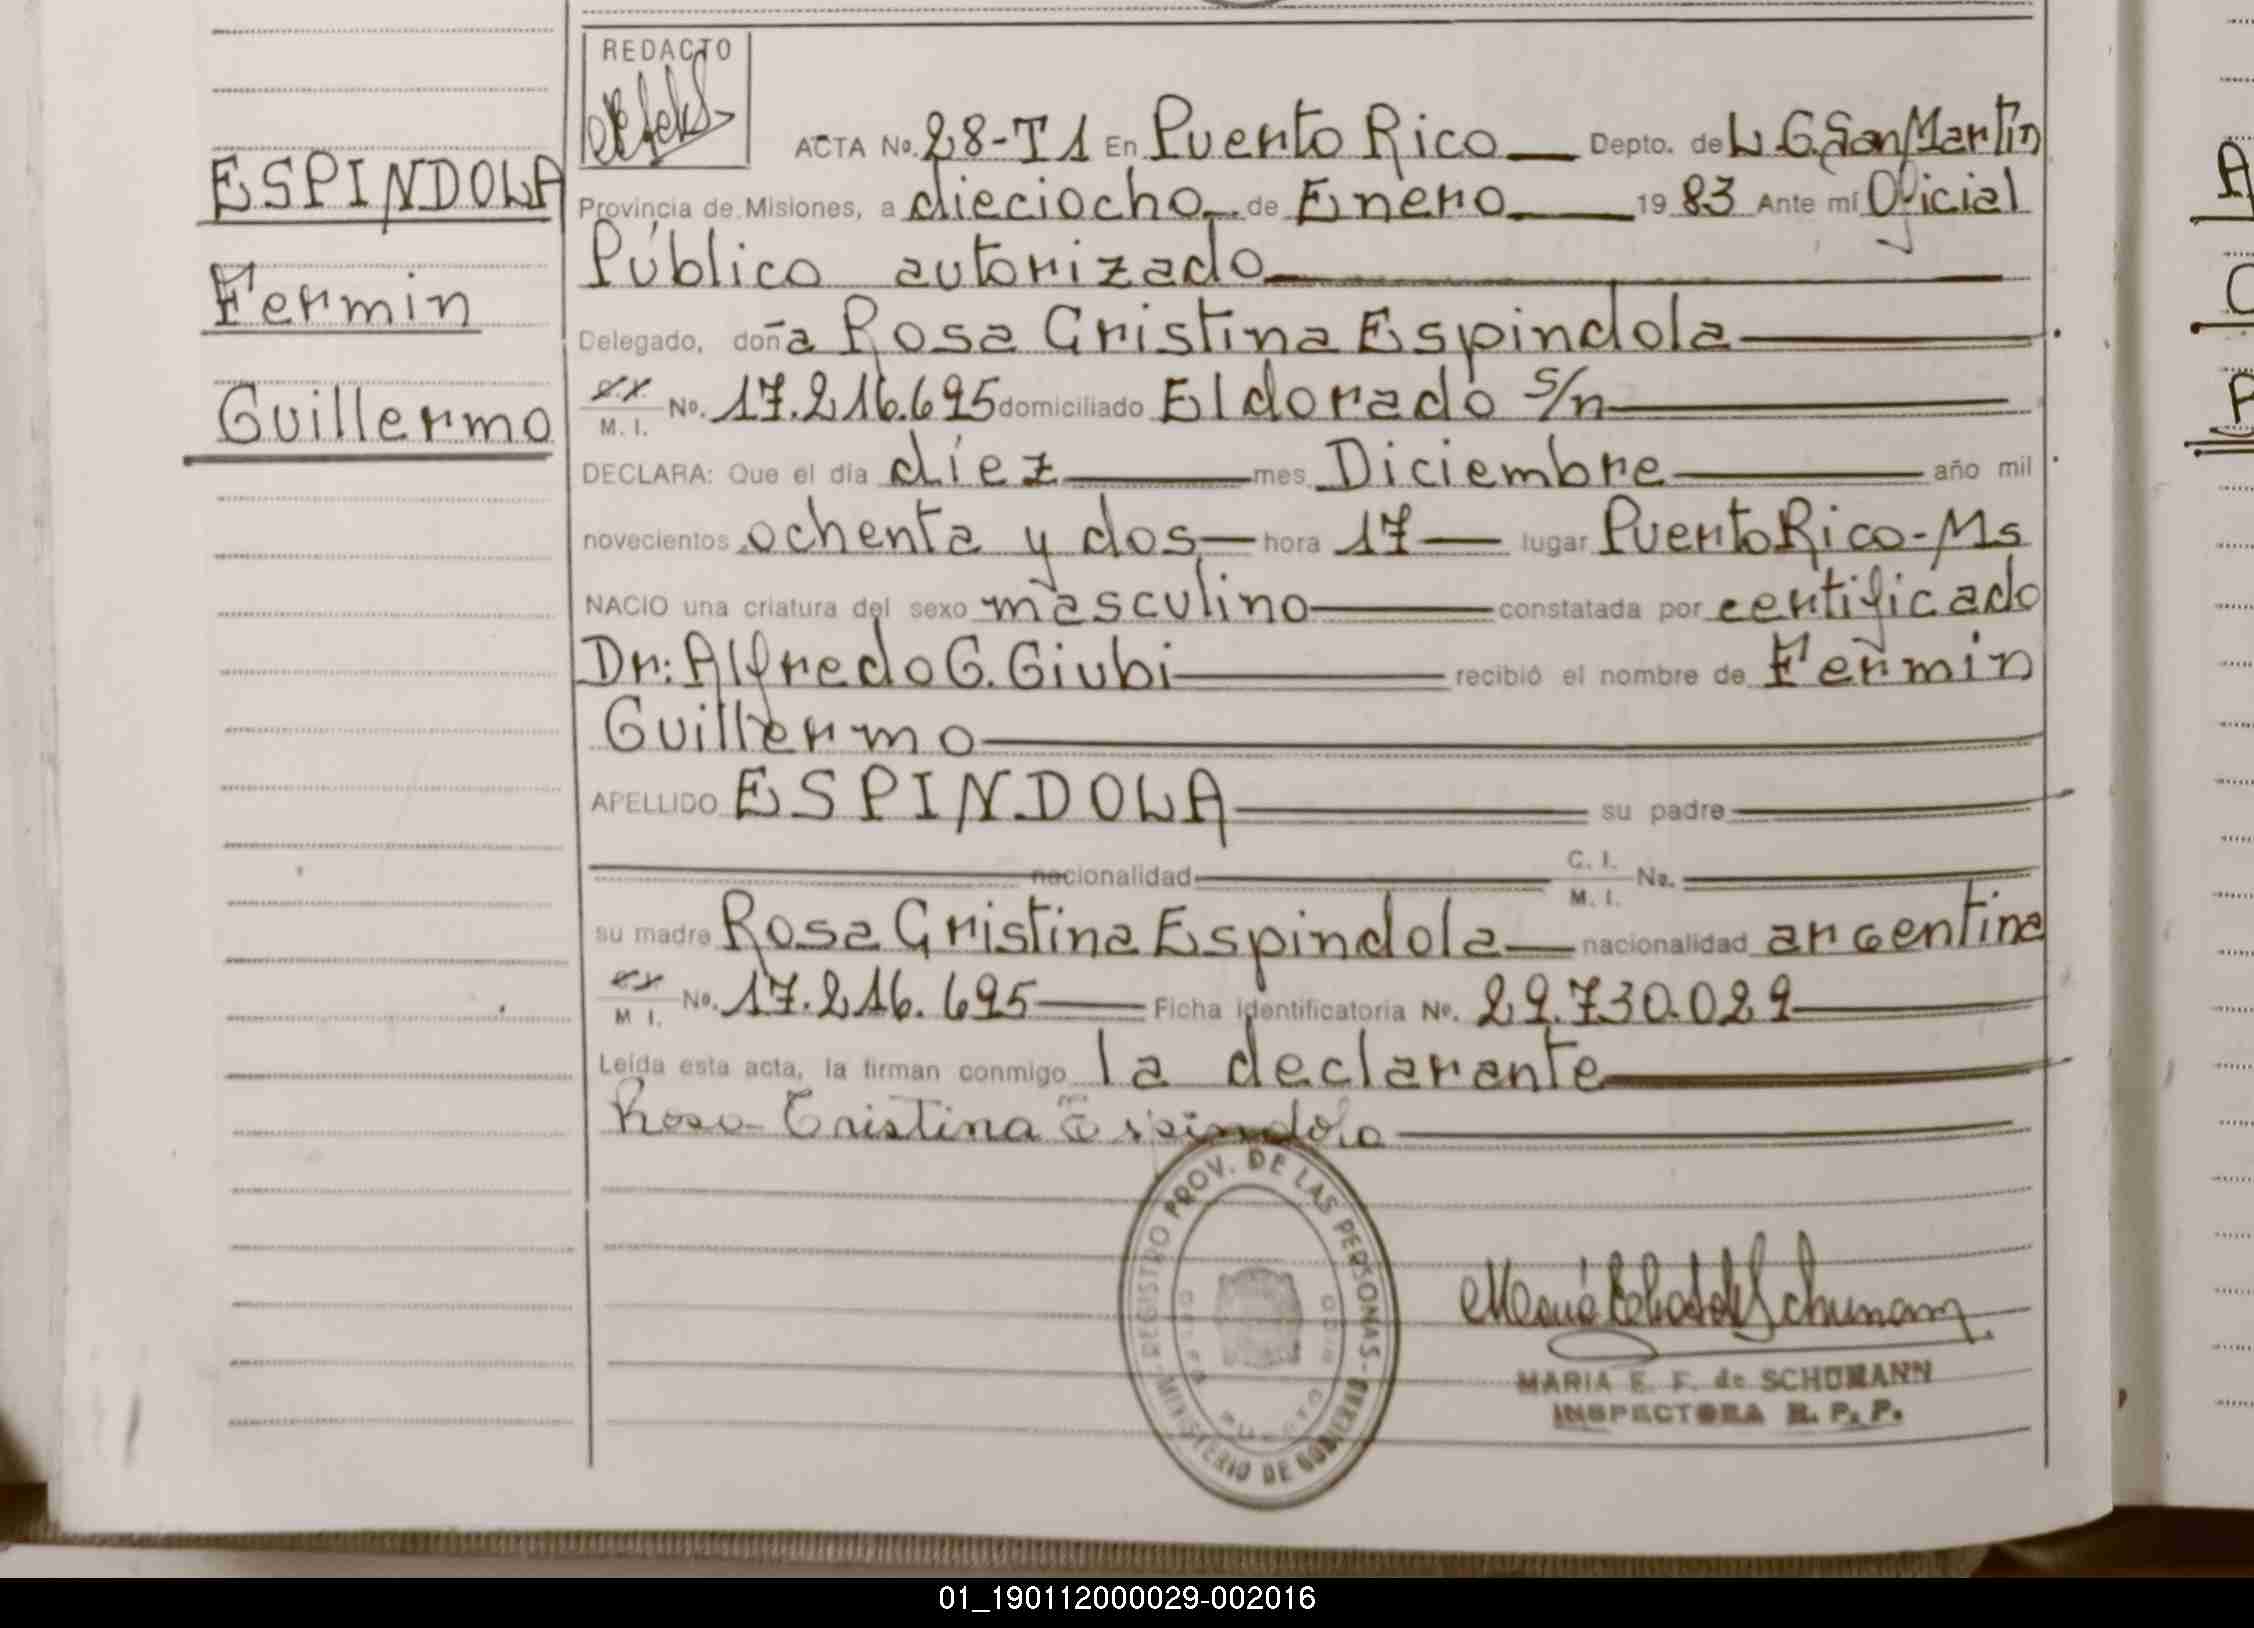 REDACTO
ACTA No. 28-T1 En Puerto Rico Depto. de L. G. San Martín
ESPINDOLA
Provincia de Misiones, a dieciocho de Enero 19 83 Ante mí Oficial
Público autorizado
Fermin
Delegado, doña Rosa Cristina Espindola
Guillermo
M. I. No. 17.216.695 domiciliado Eldorado s/n
DECLARA: Que el día diez mes Diciembre año mil
novecientos ochenta y dos hora 17 lugar Puerto Rico-Ms
NACIO una criatura del sexo masculino constatada por certificado
Dr: Alfredo G. Giubi recibió el nombre de Fermin
Guillermo
APELLIDO ESPINDOLA su padre
nacionalidad C. I. M. I. No.
su madre Rosa Cristina Espindola nacionalidad argentina
M I. No. 17.216.695 Ficha identificatoria No. 29.730.029
Leída esta acta, la firman conmigo la declarante
Rosa Cristina Espindola
REGISTRO PROV. DE LAS PERSONAS - MINISTERIO DE GOBIERNO
PUERTO
MARIA E. F. de SCHUMANN
INSPECTORA R. P. P.
01_190112000029-002016